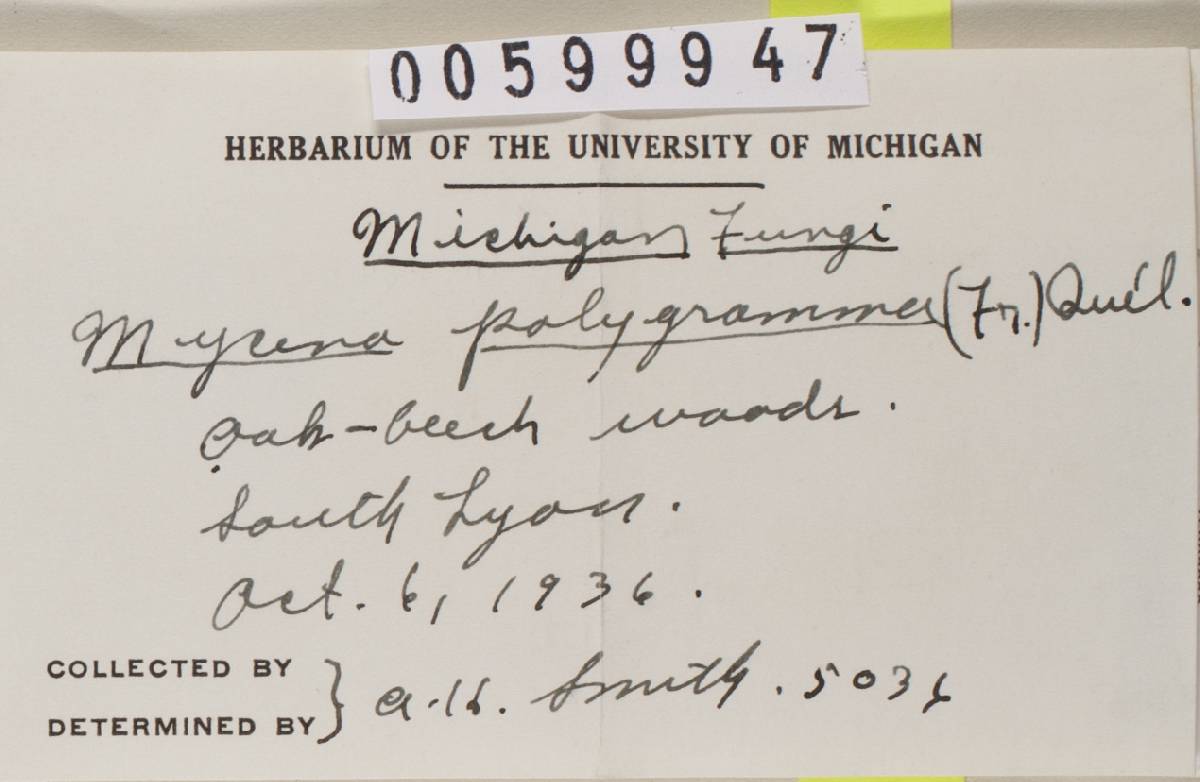 00599947
HERBARIUM OF THE UNIVERSITY OF MICHIGAN
Michigan Fungi
Mycena polygramma (Fr.) Quél.
Oak-beech woods.
South Lyon.
Oct. 6, 1936.
COLLECTED BY
DETERMINED BY } A.H. Smith. 5036